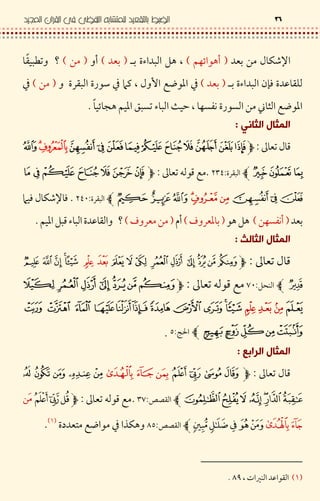 ٢٦ الضبط بالتقعيد للمتشابه اللفظي في القرآن المجيد
الإشكال من بعد ( أهوائهم ) ، هل البداءة بـ ( بعد ) أو ( من ) ؟ وتطبيقًا
للقاعدة فإن البداءة بـ ( بعد ) في الموضع الأول ، كما في سورة البقرة و ( من ) في
الموضع الثاني من السورة نفسها ، حيث الباء تسبق الميم هجائياً .
المثال الثاني :
قال تعالى : ﴿ فَإِذَا بَلَغْنَ أَجَلَهُنَّ فَلَا جُنَاحَ عَلَيْكُمْ فِيمَا فَعَلْنَ فِىٓ أَنفُسِهِنَّ بِٱلْمَعْرُوفِ وَٱللَّهُ
بِمَا تَعْمَلُونَ خَبِيرٌ ﴾ البقرة: ٢٣٤ .مع قوله تعالى : ﴿ فَإِنْ خَرَجْنَ فَلَا جُنَاحَ عَلَيْكُمْ فِى مَا
فَعَلْنَ فِىٓ أَنفُسِهِنَّ مِن مَّعْرُوفٍ وَٱللَّهُ عَزِيزٌ حَكِيمٌ ﴾ البقرة: ٢٤٠ . فالإشكال فيما
بعد ( أنفسهن ) هل هو ( بالمعروف ) أم ( من معروف ) ؟ والقاعدة الباء قبل الميم .
المثال الثالث :
قال تعالى : ﴿ وَمِنكُم مَّن يُرَدُّ إِلَىٰٓ أَرْذَلِ ٱلْعُمُرِ لِكَىْ لَا يَعْلَمَ بَعْدَ عِلْمٍ شَيْـًٔا إِنَّ ٱللَّهَ عَلِيمٌ
قَدِيرٌ ﴾ النحل: ٧٠ مع قوله تعالى : ﴿ وَمِنكُم مَّن يُرَدُّ إِلَىٰٓ أَرْذَلِ ٱلْعُمُرِ لِكَيْلَا
يَعْلَمَ مِنۢ بَعْدِ عِلْمٍ شَيْـًٔا وَتَرَى ٱلْأَرْضَ هَامِدَةً فَإِذَآ أَنزَلْنَا عَلَيْهَا ٱلْمَآءَ ٱهْتَزَّتْ وَرَبَتْ
وَأَنۢبَتَتْ مِن كُلِّ زَوْجٍۭ بَهِيجٍ ﴾ الحج: ٥ .
المثال الرابع :
قال تعالى : ﴿ وَقَالَ مُوسَىٰ رَبِّىٓ أَعْلَمُ بِمَن جَآءَ بِٱلْهُدَىٰ مِنْ عِندِهِۦ وَمَن تَكُونُ لَهُۥ
عَٰقِبَةُ ٱلدَّارِ إِنَّهُۥ لَا يُفْلِحُ ٱلظَّٰلِمُونَ ﴾ القصص: ٣٧ .مع قوله تعالى : ﴿ قُل رَّبِّىٓ أَعْلَمُ مَن
جَآءَ بِٱلْهُدَىٰ وَمَنْ هُوَ فِى ضَلَٰلٍ مُّبِينٍ ﴾ القصص: ٨٥ وهكذا في مواضع متعددة (١).
(١) القواعد النيرات ، ٨٩ .